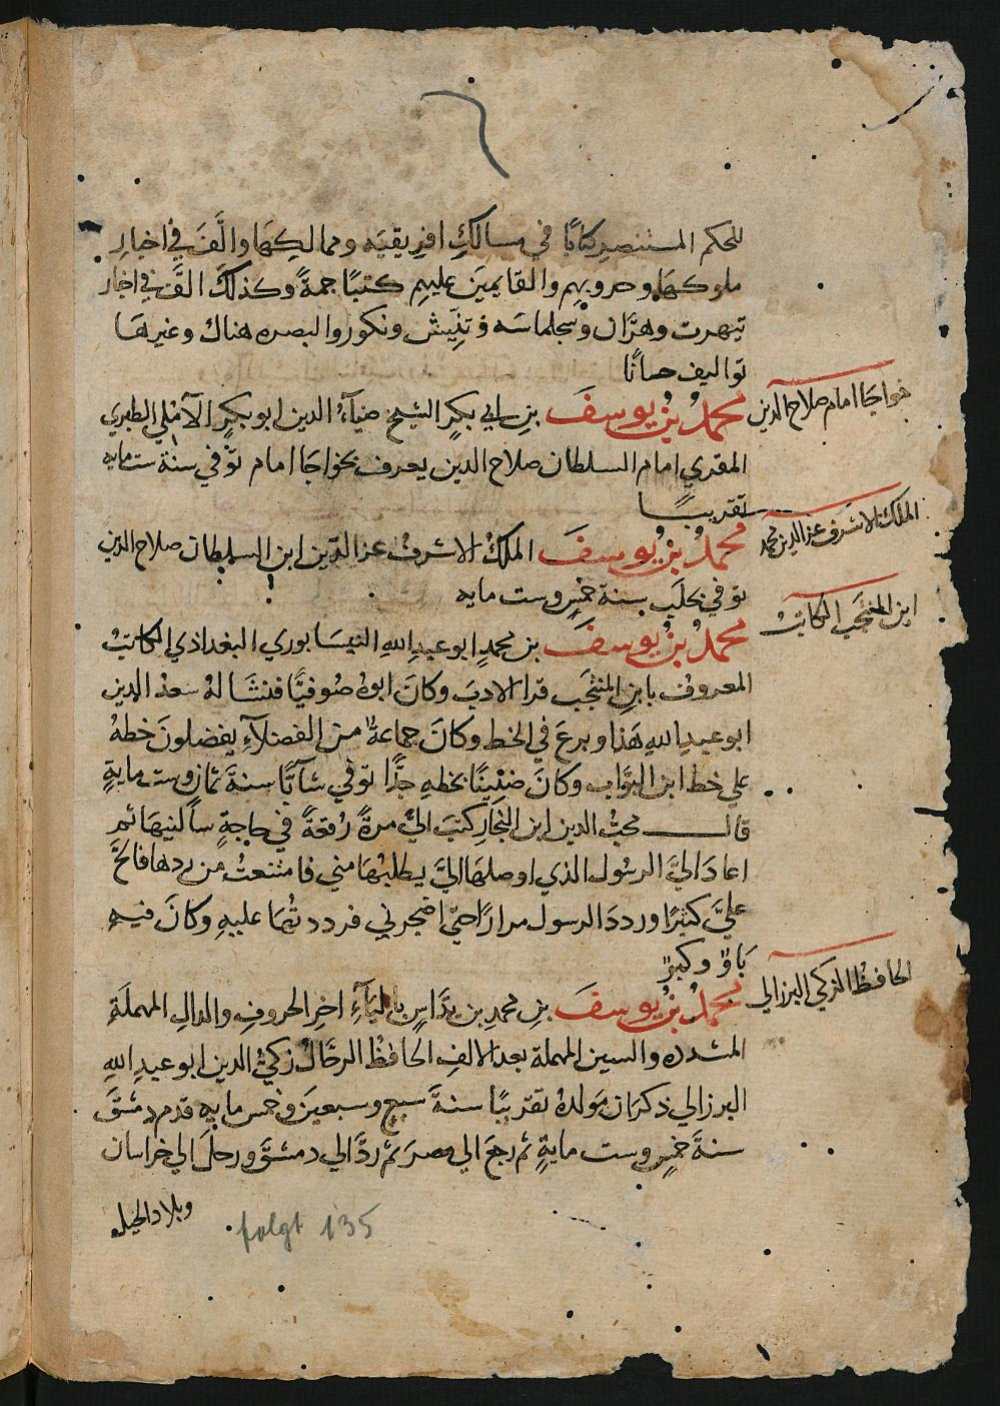 للحكم المستنصر كتابًا في مسالكِ افريقيَه وممالكِهَا والَّفَ في اخبارِ
ملوكهَا وحروبهِم والقايمينَ عليهِم كتبًا جمةً وكذلكَ الَّفَ في اخبار
تيهرت وهرَان وسجلماسَه وتنِيش ونكور والبصره هناك وغيرهَا
تواليف حسانًا
خواجَا امام صلاح الدين
محمدُ بنُ يوسفَ بنِ ابي بكرٍ الشيخ ضيآءُ الدين ابو بكرٍ الآمُلي الطبري
المقري امام السلطان صلاح الدين يعرف بخواجَا امام توفي سنة ست مايه
تقريبًا
الملك الاشرف عز الدين محمد
محمدُ بنُ يوسفَ الملكُ الاشرفُ عز الدّين ابن السلطان صلاح الدين
توفي بحلَب سنة خمسٍ وست مايه
ابن المنتجَب الكاتبُ
محمدُ بنُ يوسفَ بن محمدٍ ابو عبدِ اللهِ النيسَابوري البغداذي الكاتبُ
المعروفُ بابنِ المنتجَب قرا الادبَ وكانَ ابوهُ صُوفيًّا فنشَا لهُ سعدُ الدين
ابو عبدِ اللهِ هَذا وبرعَ في الخط وكانَ جماعةٌ من الفضلآءِ يفضلونَ خطهُ
علي خط ابن البوَّاب وكانَ ضنِينًا بخطهِ جدًّا توفي شآبًّا سنةَ ثمانٍ وست مايةٍ
قال محبُّ الدين ابن النجار كتبَ اليَّ مرةً رُقعةً في حاجةٍ سالنيهَا ثم
اعادَ اليَّ الرسُول الذي اوصلهَا اليَّ يطلبُهَا مني فامتنعتُ من ردها فالحَّ
عليَّ كثيرًا ورددَ الرسول مرارًا حتي اضجرني فرددتُهَا عليهِ وكانَ فيهِ
بَاوٌ وكبرٌ
الحافظُ الزكي البرزالي
محمدُ بنُ يوسفَ بنِ محمدِ بن يدَّاسٍ باليَآءِ اخرِ الحروفِ والدالِ المهملَةِ
المشدده والسين المهملة بعدَ الالفِ الحافظُ الرحَّالُ زكيُّ الدين ابو عبدِ اللهِ
البرزالي ذكرَ ان مَولدهُ تقريبًا سنةَ سبعٍ وسبعينَ وخمس مايهِ قدم دمشقَ
سنةَ خمسٍ وست مايةٍ ثم رجعَ الي مصرَ ثم ردَّ الي دمشقَ ورحلَ الي خراسان
وبلاد الجبل
folgt 135